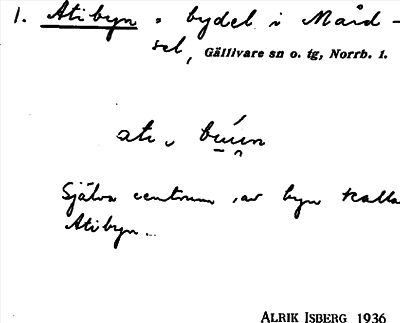 1. Atibyn = bydel i Mård-
sel, Gällivare sn o. tg, Norrb. l.
Själva centrum av byn kalla
Atibyn.
ALRIK ISBERG 1936